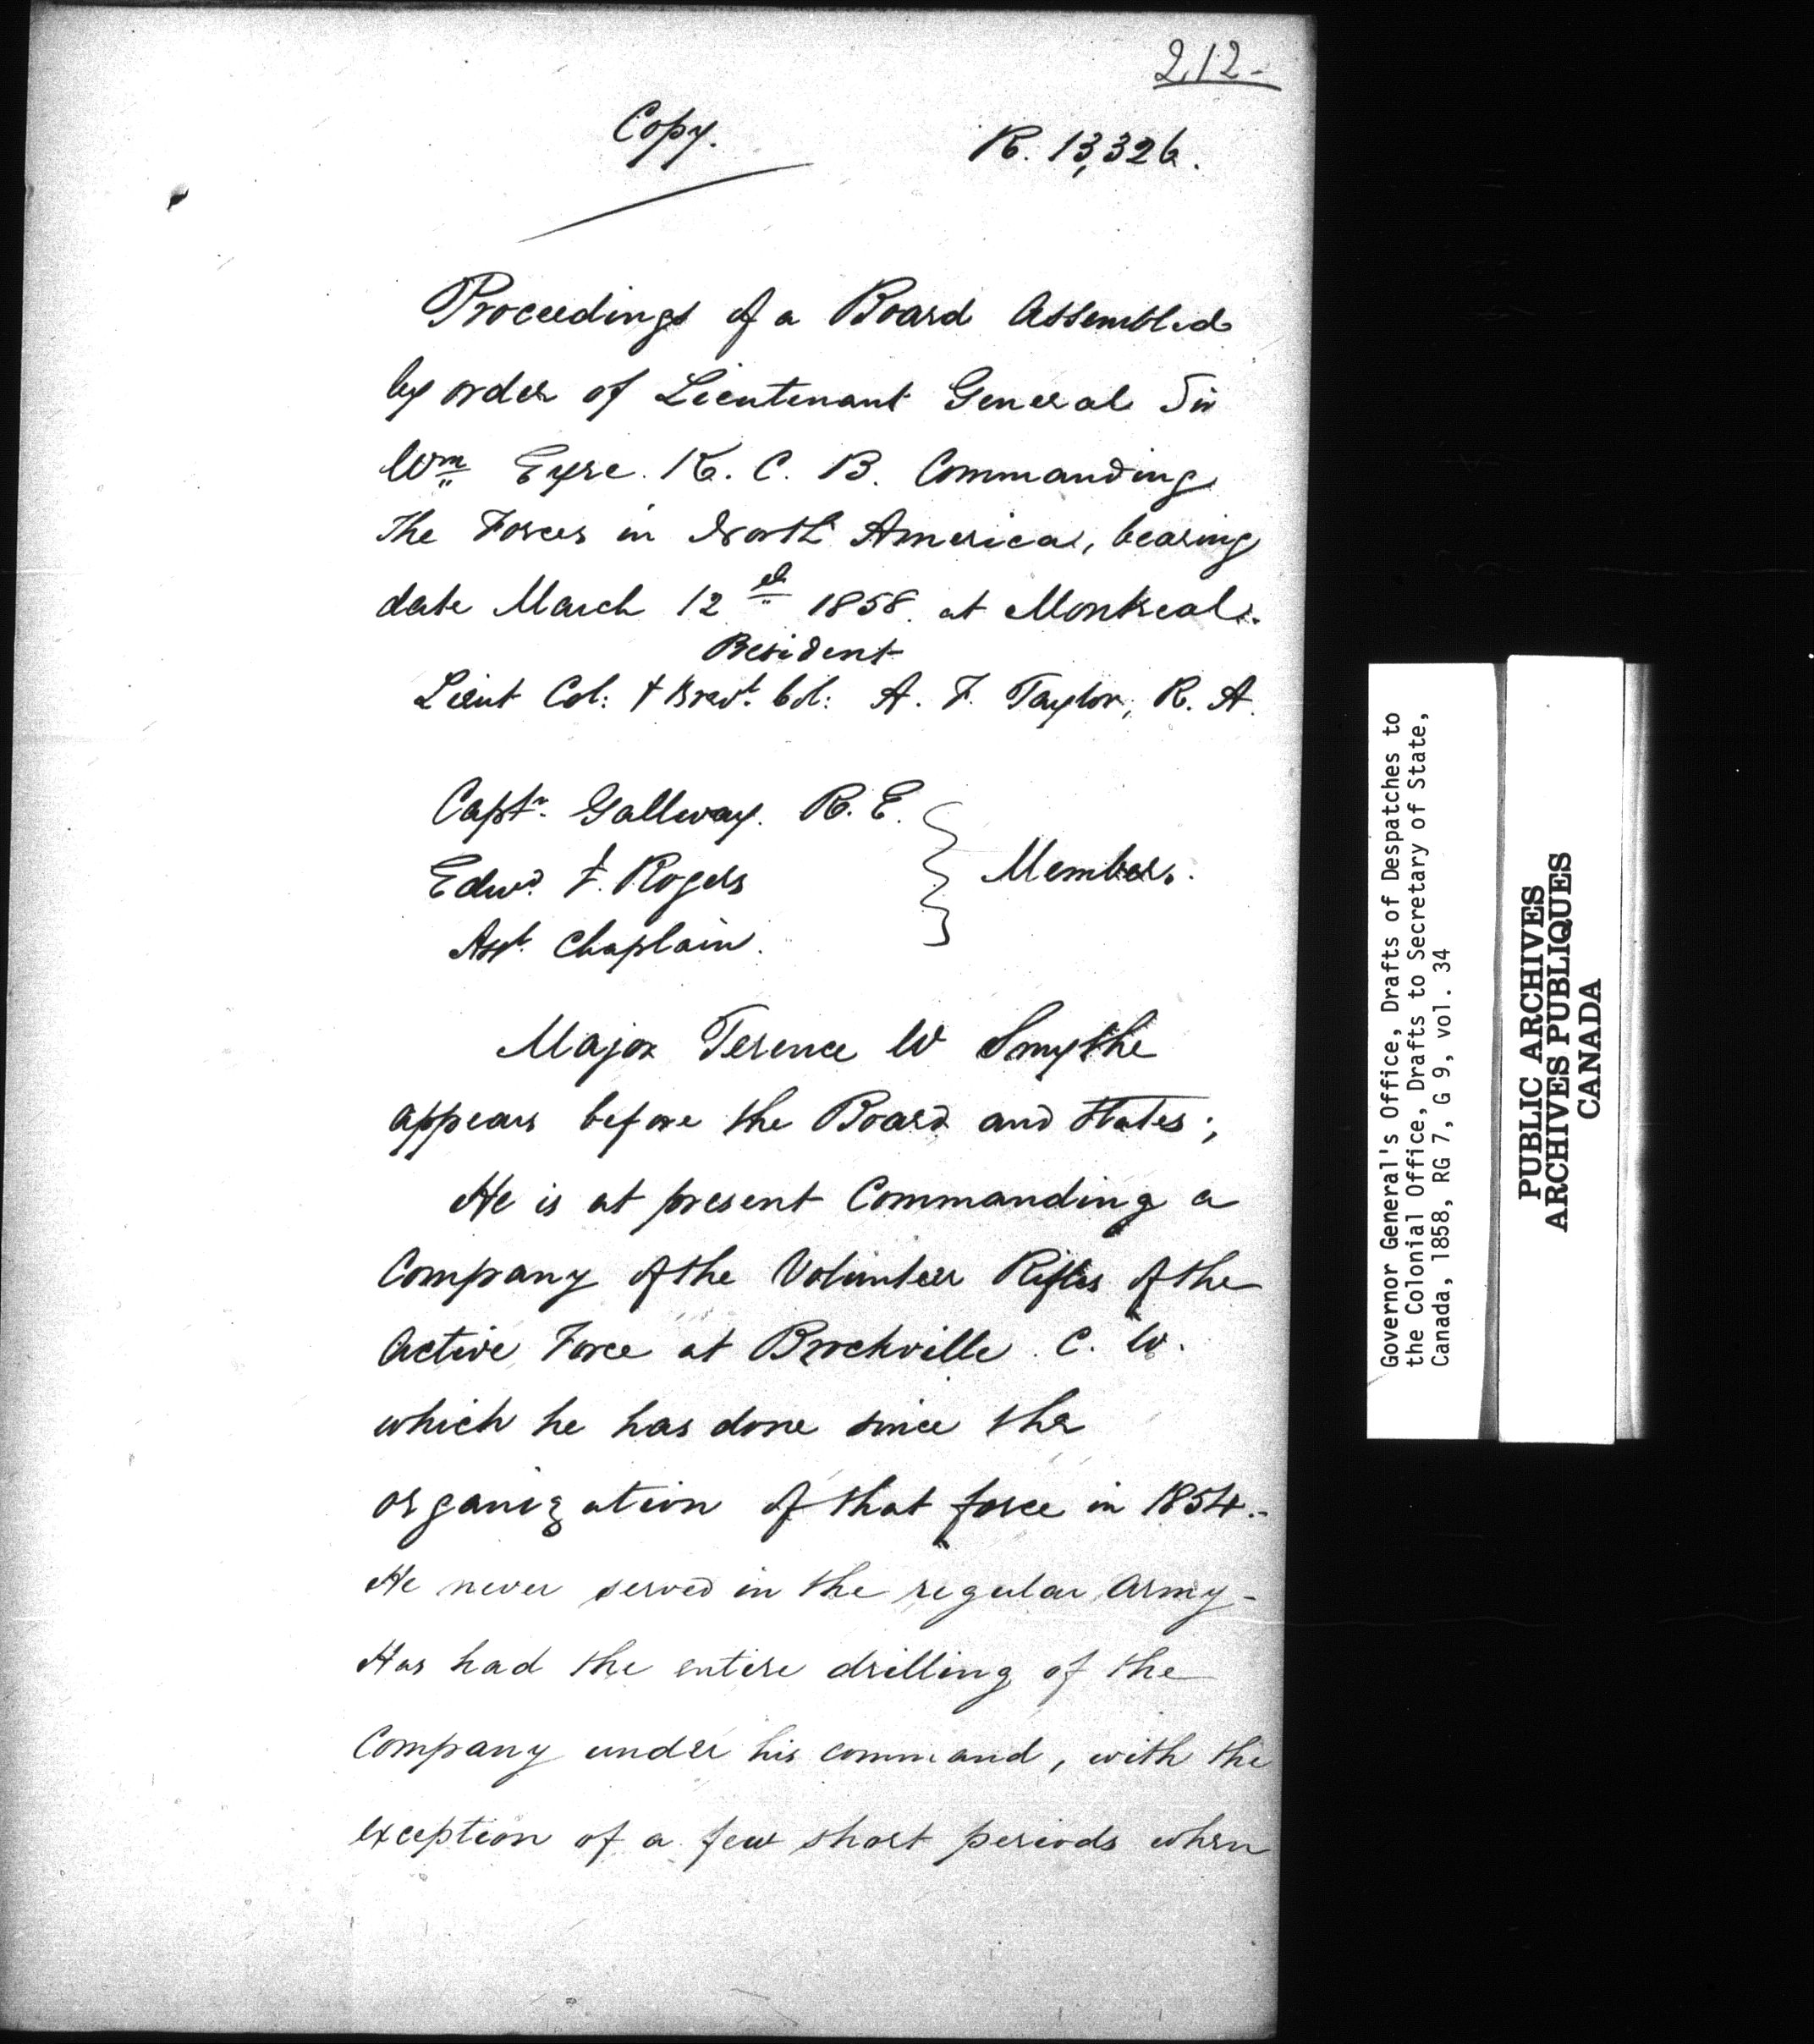 212-
Copy. R. 13,326.
Proceedings of a Board Assembled
by order of Lieutenant General Sir
Wm Eyre. K. C. B. Commanding
The Forces in North America, bearing
date March 12th 1858. at Montreal.
President
Lieut Col: & Brevt. Col: A. F. Taylor, R. A.
Captn. Gallway. R. E.
Edwd. J. Rogers
Asst. Chaplain.
Members.
Major Terence W Smythe
appears before the Board and States;
He is at present Commanding a
Company of the Volunteer Rifles of the
Active Force at Brockville C. W.
which he has done since the
organization of that force in 1854.-
He never served in the regular Army-
Has had the entire drilling of the
Company under his command, with the
exception of a few short periods when
Governor General's Office, Drafts of Despatches to
the Colonial Office, Drafts to Secretary of State,
Canada, 1858, RG 7, G 9, vol. 34
PUBLIC ARCHIVES
ARCHIVES PUBLIQUES
CANADA